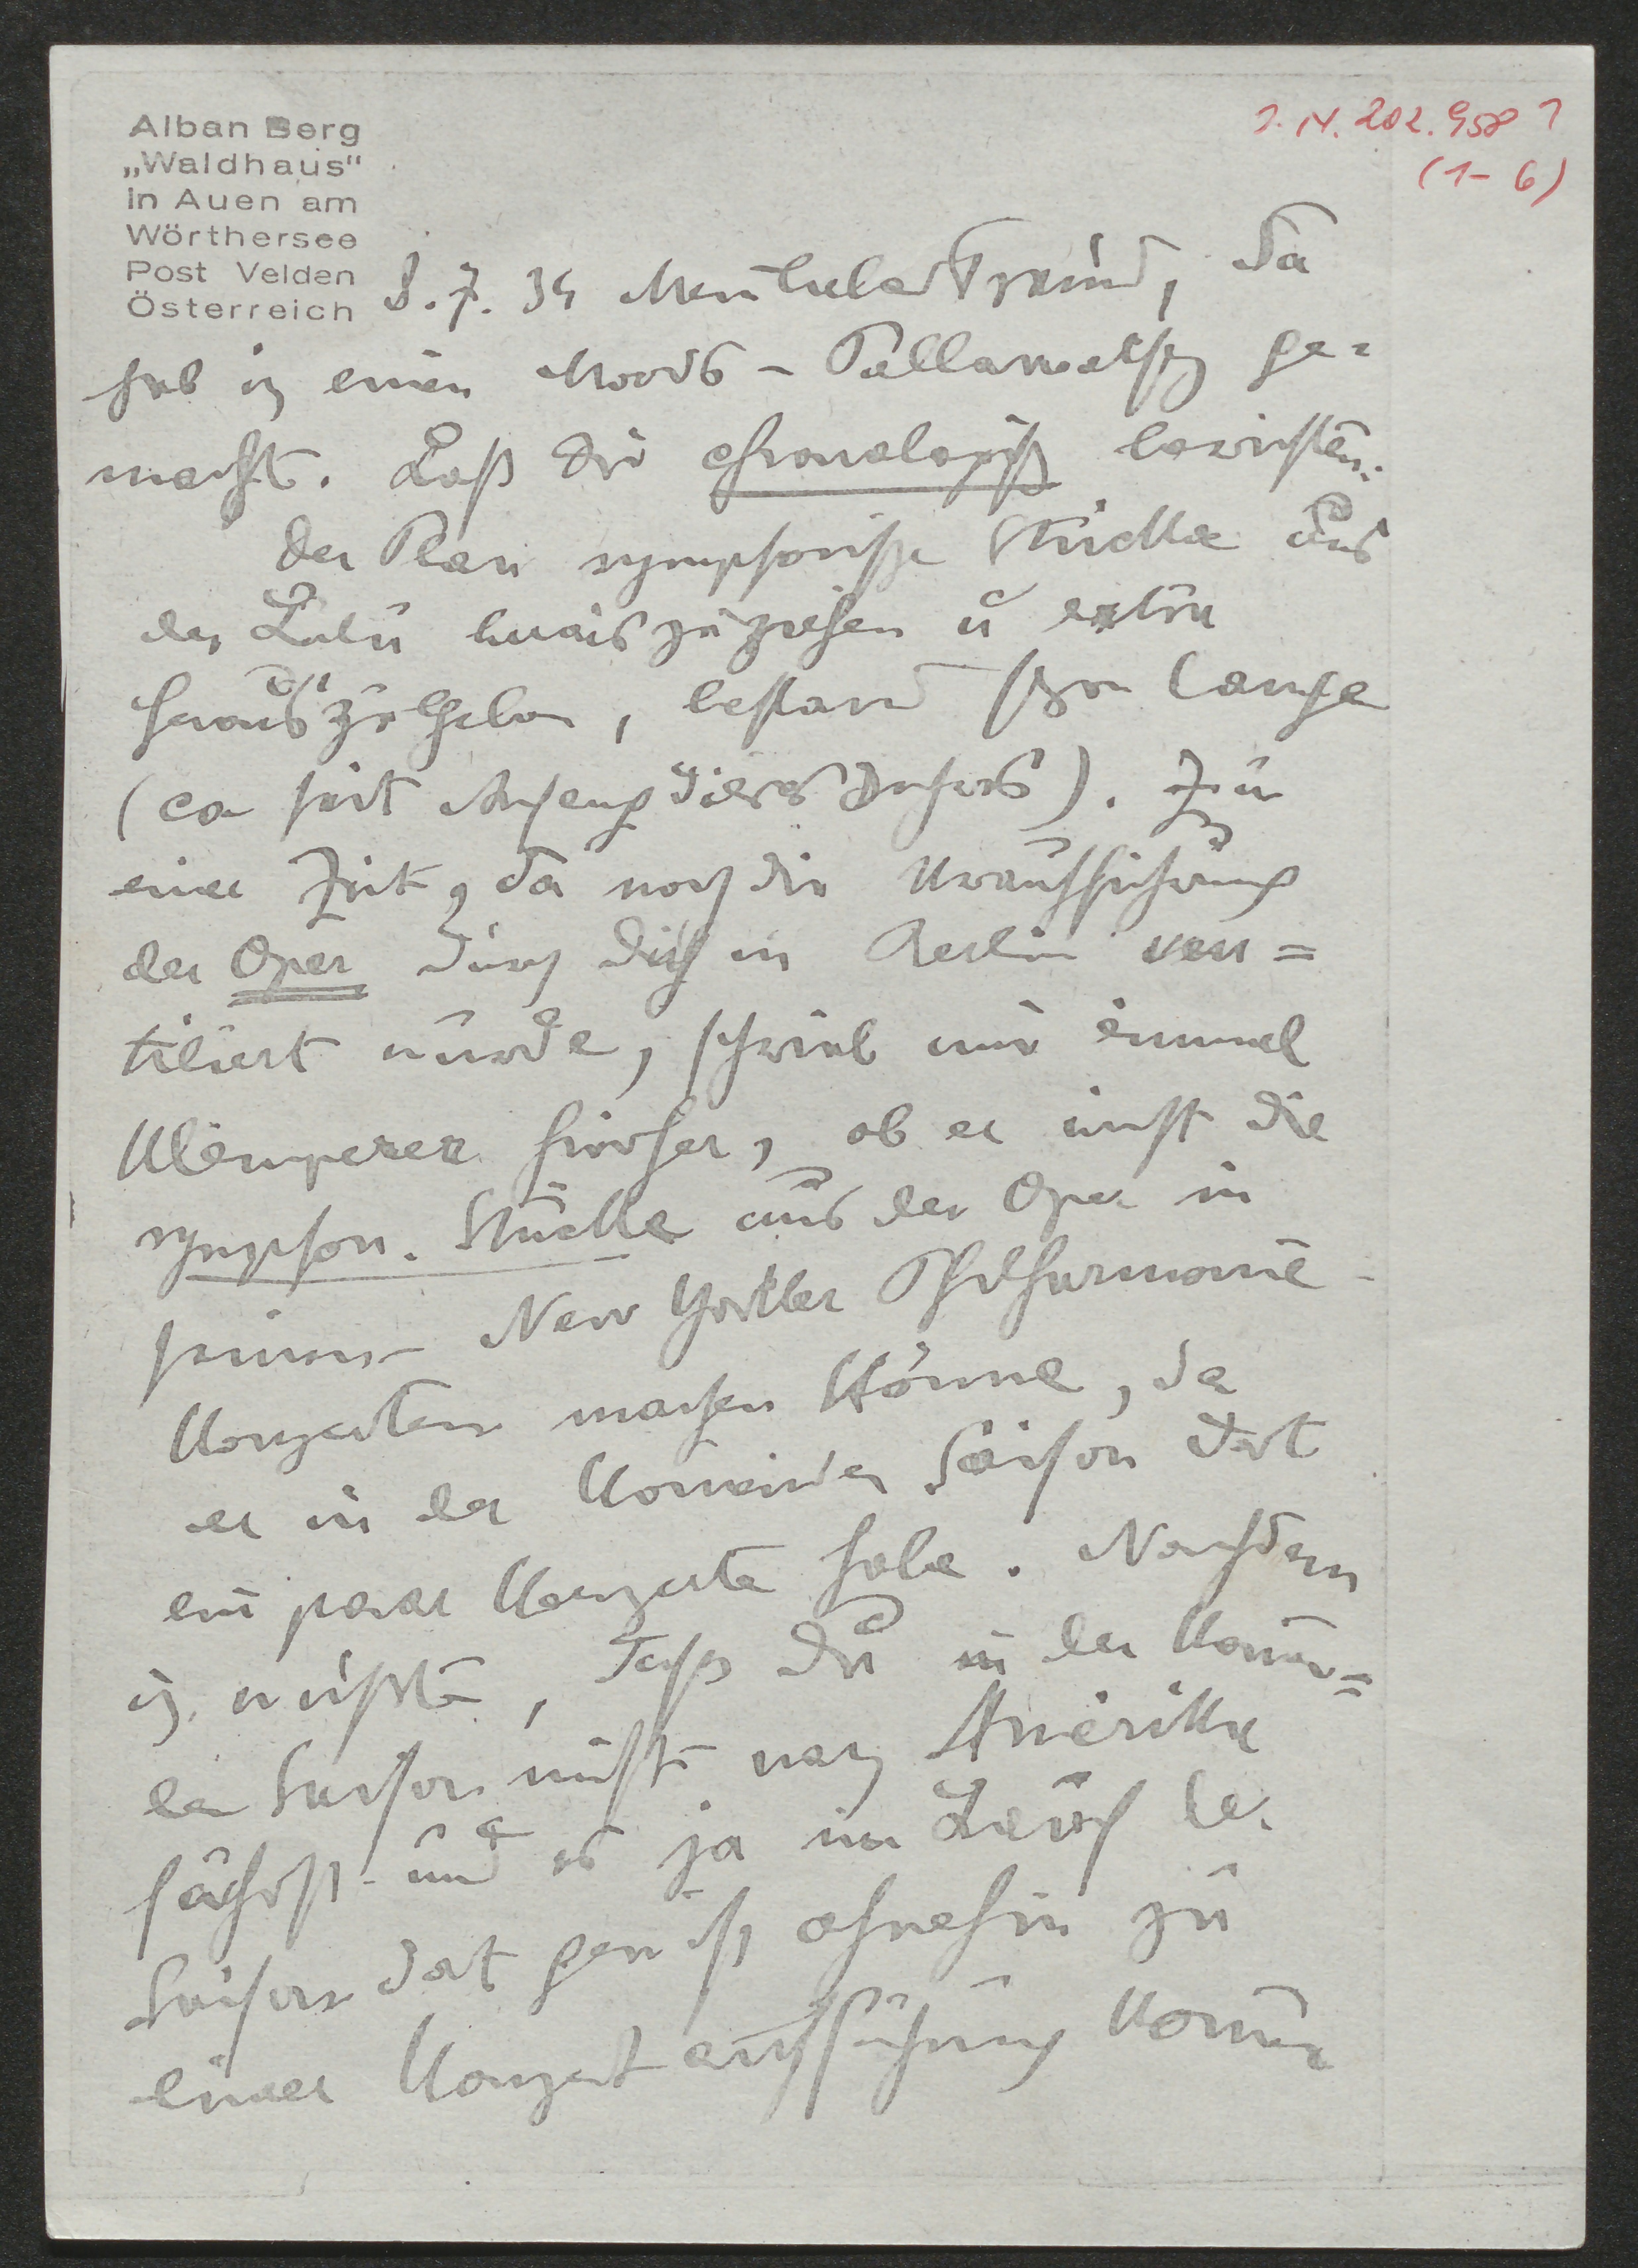 Alban Berg
„Waldhaus“
in Auen am
Wörthersee
Post Velden
Österreich
I.N. 202.958
(1-6)
8.7.34 Mein lieber Freund, da
hab ich einen Mords-Pallawatsch ge=
macht. Laß Dir chronologisch berichten:
Der Plan symphonische Stücke aus
der Lulu herauszuziehen u extra
herauszugeben, bestand schon lange
(ca seit Anfang dieses Jahres). Zu
einer Zeit, da noch die Uraufführung
der Oper durch Dich in Berlin ven=
tiliert wurde, schrieb mir einmal
Klemperer hierher, ob er nicht die
symphon. Stücke aus der Oper in
seinen New Yorker Philharmonie-
Konzerten machen könne, da
er in der kommenden Saison dort
ein paar Konzerte habe. Nachdem
ich wußte, daß Du in der komen=
den Saison nicht nach Amerika
fährst und es ja im Lauf der
Saison dort gewiß ohnehin zu
einer Konzertaufführung komme